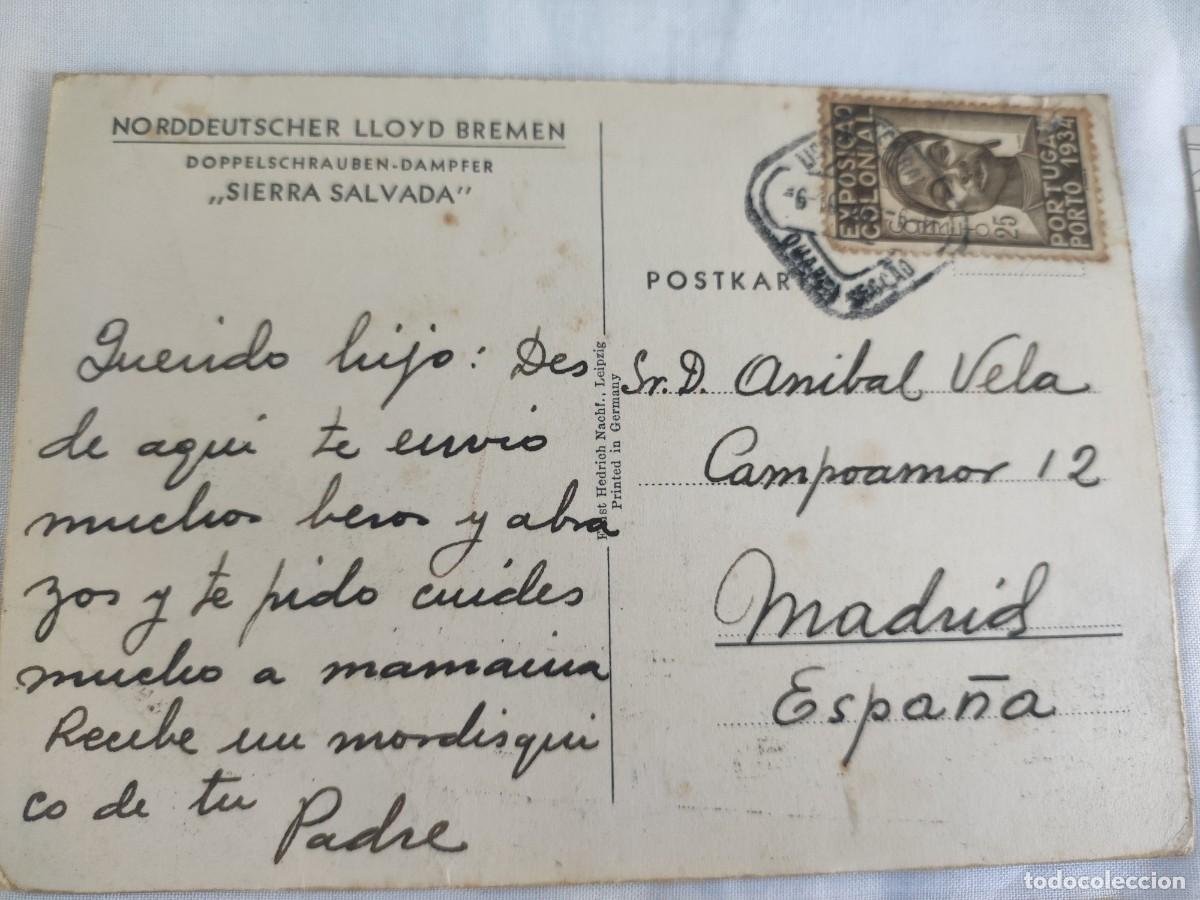 NORDDEUTSCHER LLOYD BREMEN
DOPPELSCHRAUBEN-DAMPFER
„SIERRA SALVADA"
Querido hijo: Des
de aqui te envio
muchos besos y abra
zos y te pido cuides
mucho a mamaina
Recibe un mordisqui
co de tu
Padre
Hedrich Nachf., Leipzig
Printed in Germany
EXPOSIÇÃO
COLONIAL
25
PORTUGAL
PORTO 1934
SECÇÃO
POSTKAR
Sr. D. Anibal Vela
Campoamor 12
Madrid
España
todocoleccion